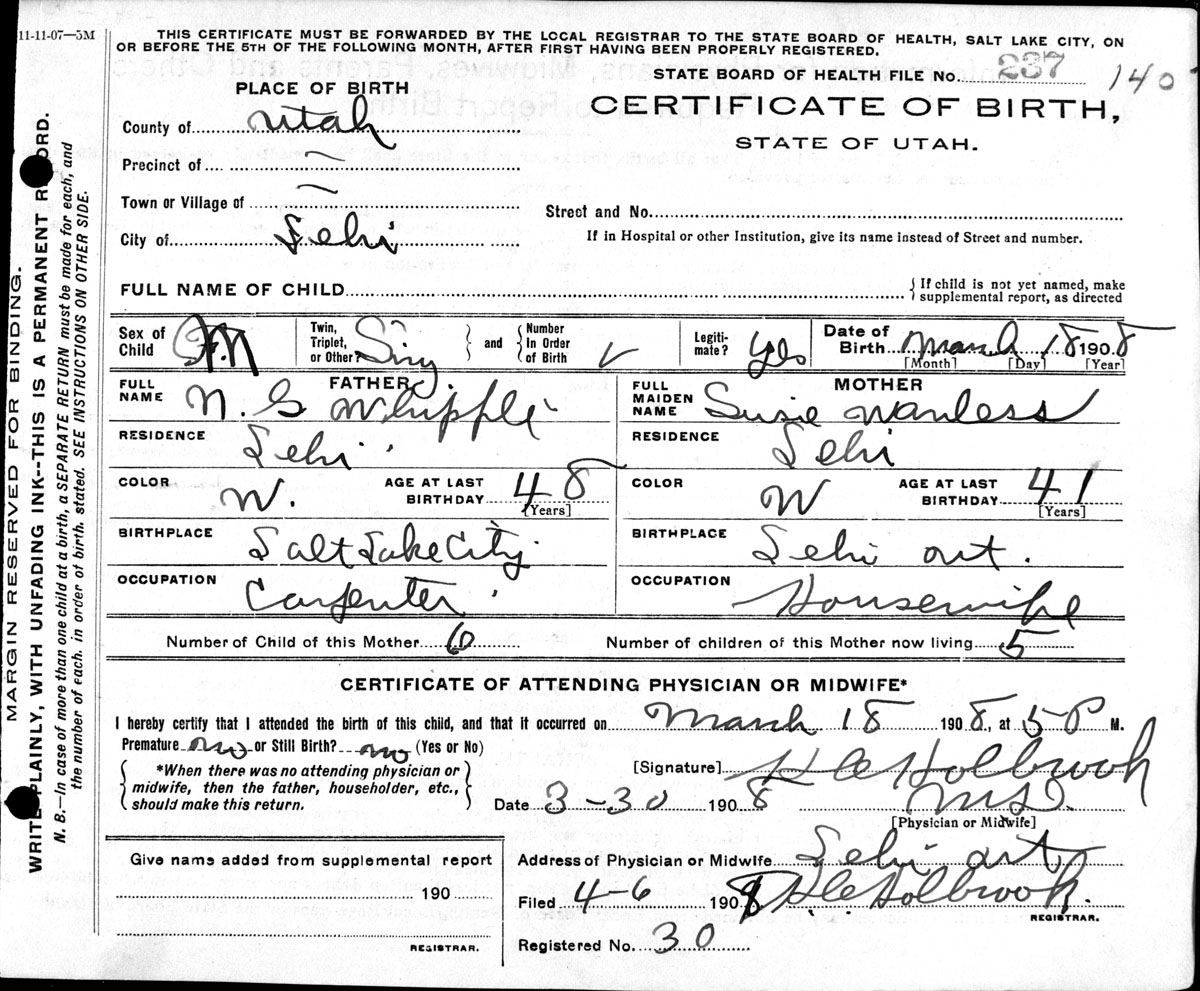 11-11-07—5M
THIS CERTIFICATE MUST BE FORWARDED BY THE LOCAL REGISTRAR TO THE STATE BOARD OF HEALTH, SALT LAKE CITY, ON
OR BEFORE THE 5TH OF THE FOLLOWING MONTH, AFTER FIRST HAVING BEEN PROPERLY REGISTERED.
STATE BOARD OF HEALTH FILE No. 237 140
PLACE OF BIRTH
CERTIFICATE OF BIRTH,
STATE OF UTAH.
County of Utah
Precinct of —
Town or Village of —
Street and No.
City of Lehi
If in Hospital or other Institution, give its name instead of Street and number.
FULL NAME OF CHILD { If child is not yet named, make supplemental report, as directed
Sex of Child M Twin, Triplet, or Other Sing } and { Number In Order of Birth Legiti-mate? Yes Date of Birth March 18 1908
[Month] [Day] [Year]
FATHER MOTHER
FULL NAME N. G Whipple FULL MAIDEN NAME Susie Wanless
RESIDENCE Lehi RESIDENCE Lehi
COLOR W. AGE AT LAST BIRTHDAY 48 [Years] COLOR W AGE AT LAST BIRTHDAY 41 [Years]
BIRTHPLACE Salt Lake City BIRTHPLACE Lehi ut.
OCCUPATION Carpenter OCCUPATION Housewife
Number of Child of this Mother 6 Number of children of this Mother now living 5
CERTIFICATE OF ATTENDING PHYSICIAN OR MIDWIFE*
I hereby certify that I attended the birth of this child, and that it occurred on March 18 1908, at 5 P M.
Premature no or Still Birth? no (Yes or No)
[Signature] Holbrook
{ *When there was no attending physician or midwife, then the father, householder, etc., should make this return. }
Date 3-30 1908 M.D.
[Physician or Midwife]
Give name added from supplemental report
190
REGISTRAR.
Address of Physician or Midwife Lehi ut
Filed 4-6 1908 Holbrook.
REGISTRAR.
Registered No. 30
MARGIN RESERVED FOR BINDING.
WRITE PLAINLY, WITH UNFADING INK--THIS IS A PERMANENT RECORD.
N. B.—In case of more than one child at a birth, a SEPARATE RETURN must be made for each, and
the number of each. in order of birth. stated. SEE INSTRUCTIONS ON OTHER SIDE.